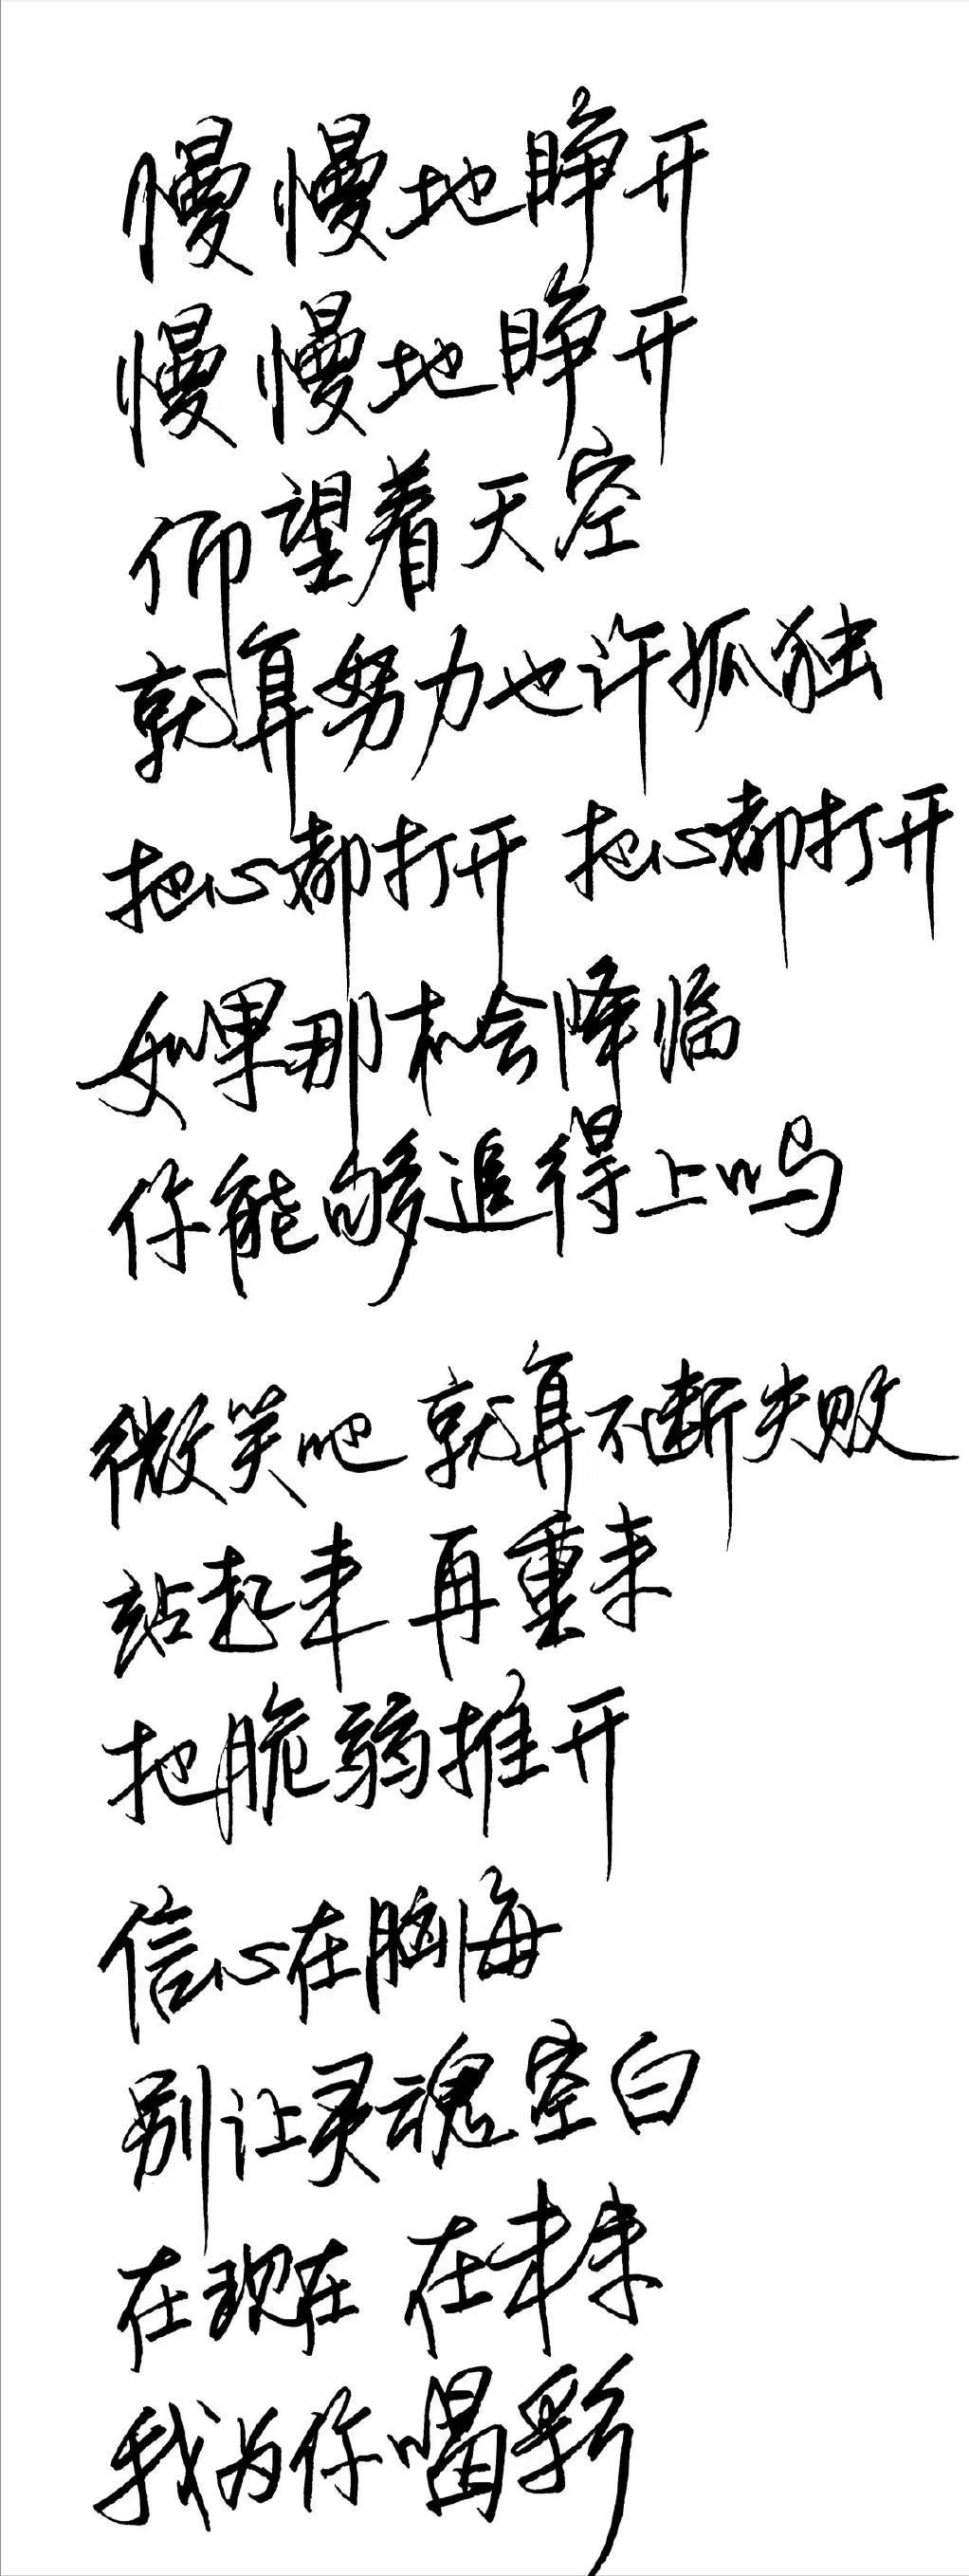 慢慢地睁开
慢慢地睁开
仰望着天空
就算努力也许孤独
把心都打开 把心都打开
如果那机会降临
你能够追得上吗
微笑吧 就算不断失败
站起来 再重来
把脆弱推开
信心在脑海
别让灵魂空白
在现在 在未来
我为你喝彩